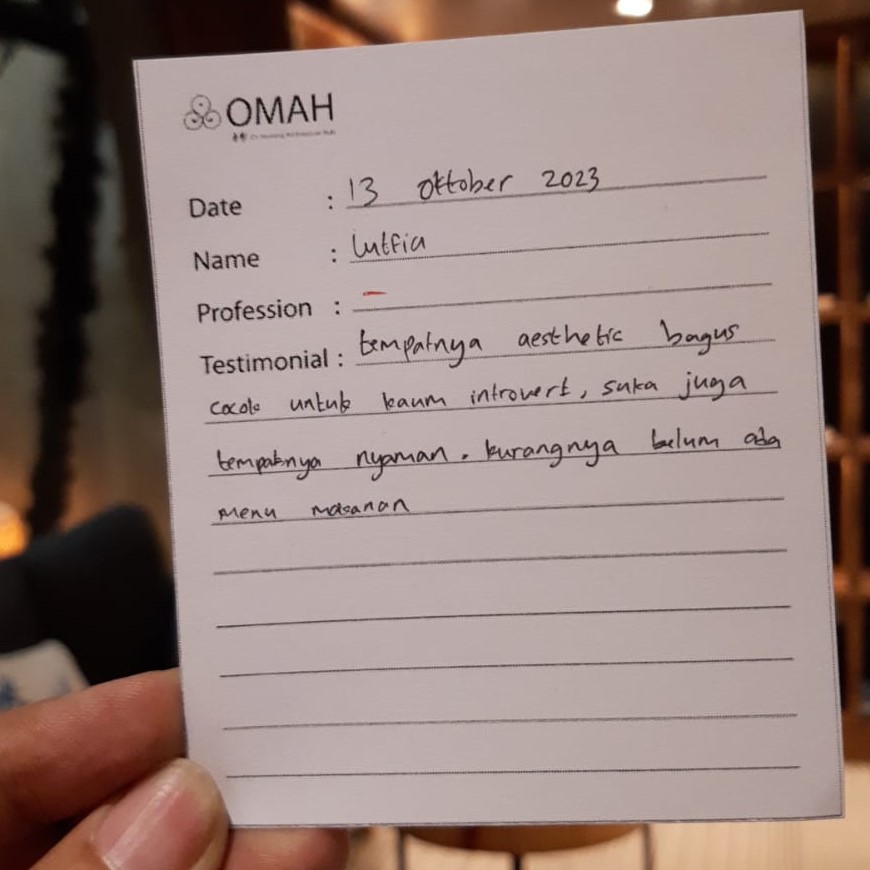 OMAH
Date : 13 Oktober 2023
Name : Lutfia
Profession : –
Testimonial : tempatnya aesthetic bagus
cocok untuk kaum introvert, suka juga
tempatnya nyaman. kurangnya belum ada
menu makanan